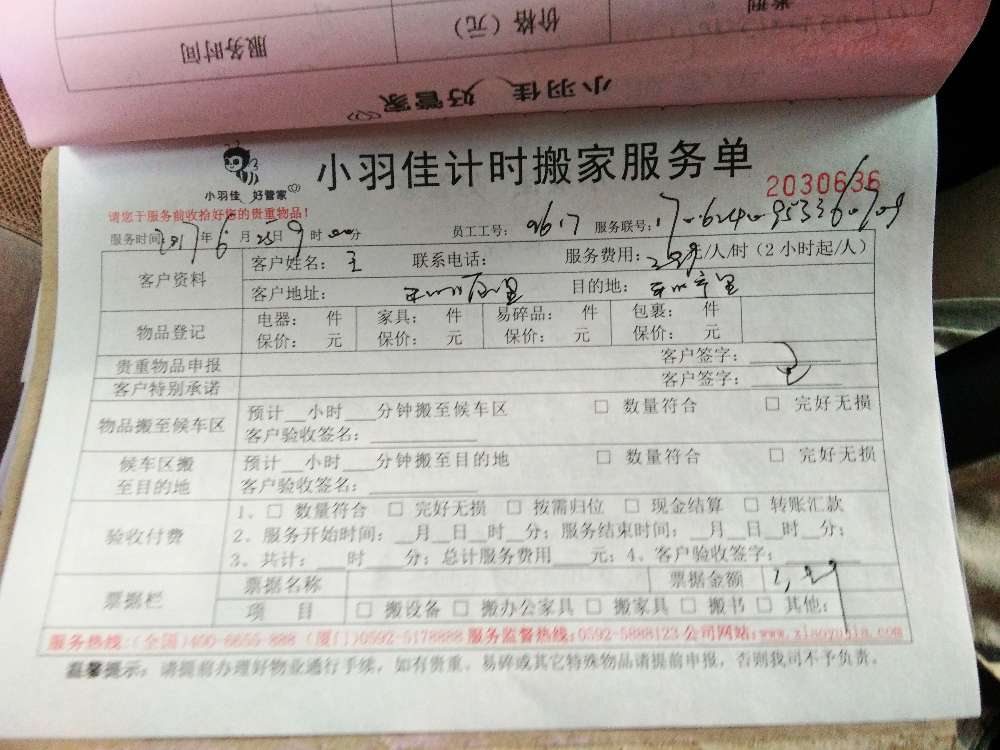 类别
价格（元）
服务时间
小羽佳 好管家
小羽佳计时搬家服务单
2030636
小羽佳 好管家
请您于服务前收拾好您的贵重物品！
服务时间：2017年6月25日9时00分 员工工号：9617 服务联号：
客户资料 客户姓名：王 联系电话： 服务费用： 元/人/时（2小时起/人）
客户地址： 目的地：
物品登记 电器： 件 家具： 件 易碎品： 件 包裹： 件
保价： 元 保价： 元 保价： 元 保价： 元
贵重物品申报 客户签字：
客户特别承诺 客户签字：
物品搬至候车区 预计__小时___分钟搬至候车区 □ 数量符合 □ 完好无损
客户验收签名：
候车区搬至目的地 预计__小时___分钟搬至目的地 □ 数量符合 □ 完好无损
客户验收签名：
验收付费 1、□ 数量符合 □ 完好无损 □ 按需归位 □ 现金结算 □ 转账汇款
2、服务开始时间：__月__日__时__分；服务结束时间：__月__日__时__分；
3、共计：__时___分；总计服务费用___元；4、客户验收签字：
票据栏 票据名称 票据金额
项 目 □ 搬设备 □ 搬办公家具 □ 搬家具 □ 搬书 □ 其他：
服务热线：（全国）400-6655-888 （厦门）0592-5178888 服务监督热线：0592-5888123 公司网站：www.xiaoyujia.com
温馨提示：请提前办理好物业通行手续，如有贵重、易碎或其它特殊物品请提前申报，否则我司不予负责。